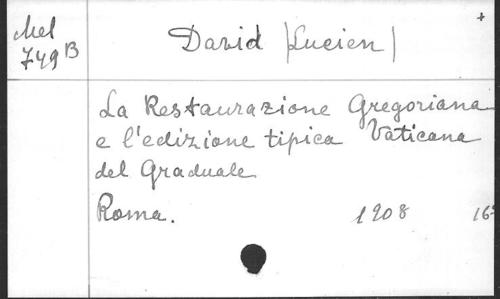 Mel
749B
David (Lucien)
La Restaurazione Gregoriana
e l'edizione tipica Vaticana
del Graduale
Roma. 1908 16°